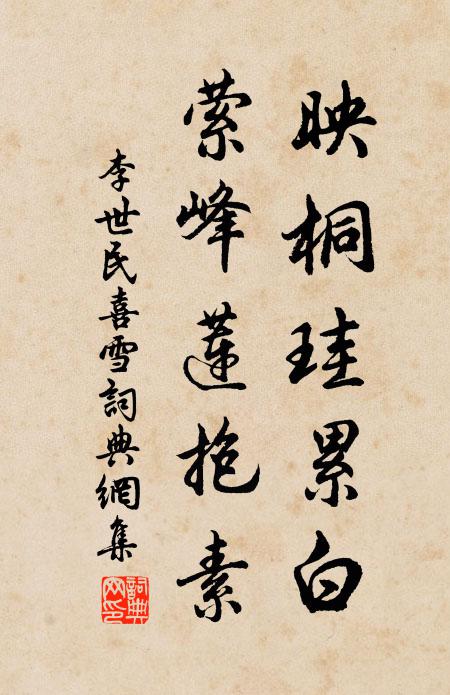 映桐珪累白
萦峰蓮抱素
李世民喜雪詞典網集
詞典
网印